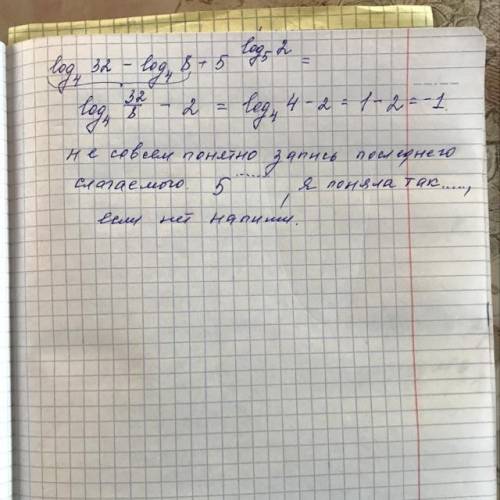 log₄ 32 − log₄ 8 + 5^(log₅ 2) =
log₄ 32/8 − 2 = log₄ 4 − 2 = 1 − 2 = −1
не совсем понятно запись последнего
слагаемого 5^......, я поняла так.....,
если нет напиши.